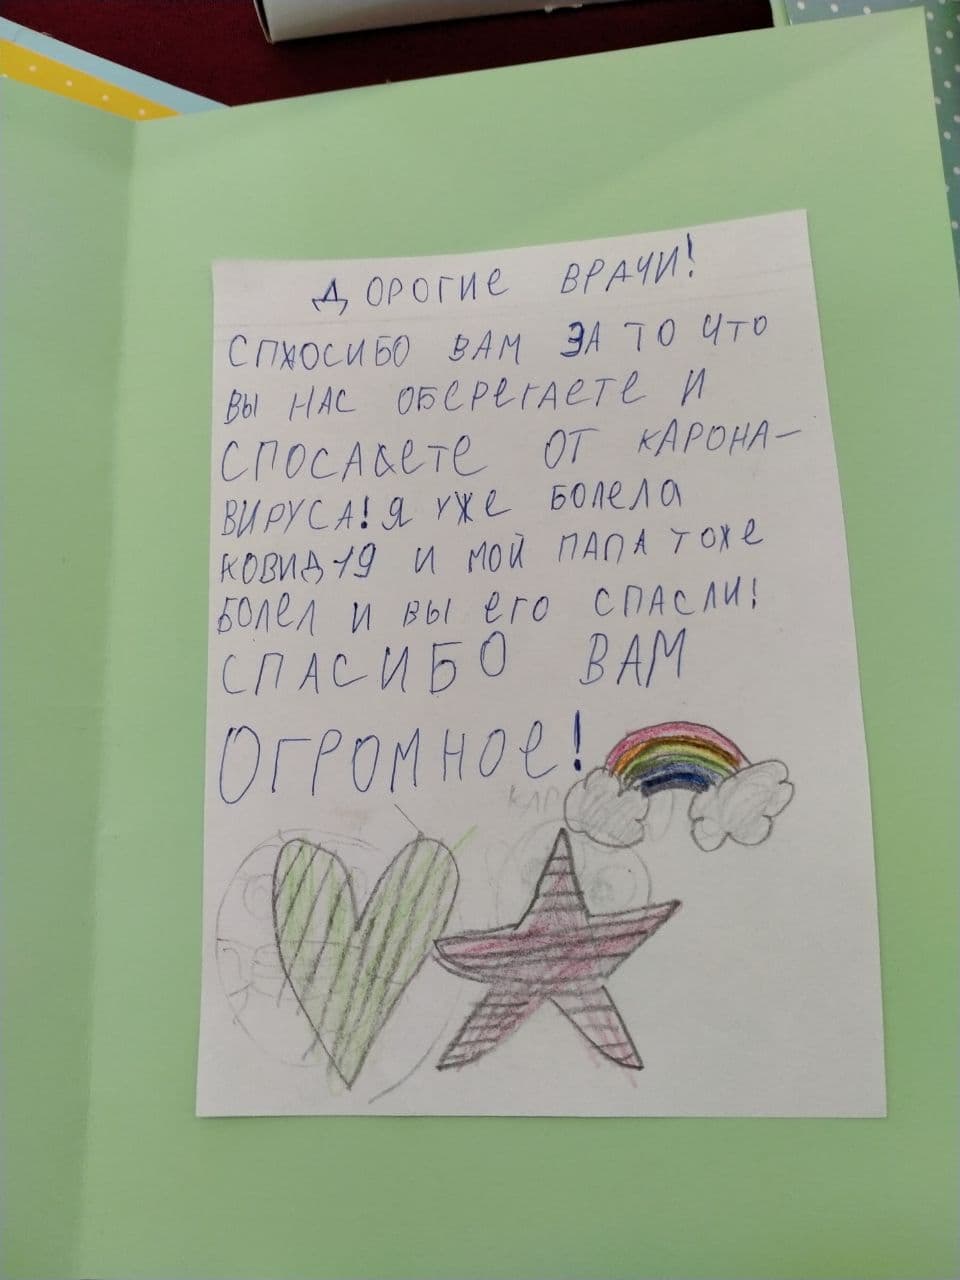 ДОРОГИЕ ВРАЧИ!
СПОСИБО ВАМ ЗА ТО ЧТО
ВЫ НАС ОБЕРЕГАЕТЕ И
СПОСАЕТЕ ОТ КАРОНА-
ВИРУСА! Я УЖЕ БОЛЕЛА
КОВИД19 И МОЙ ПАПА ТОЖЕ
БОЛЕЛ И ВЫ ЕГО СПАСЛИ!
СПАСИБО ВАМ
ОГРОМНОЕ!